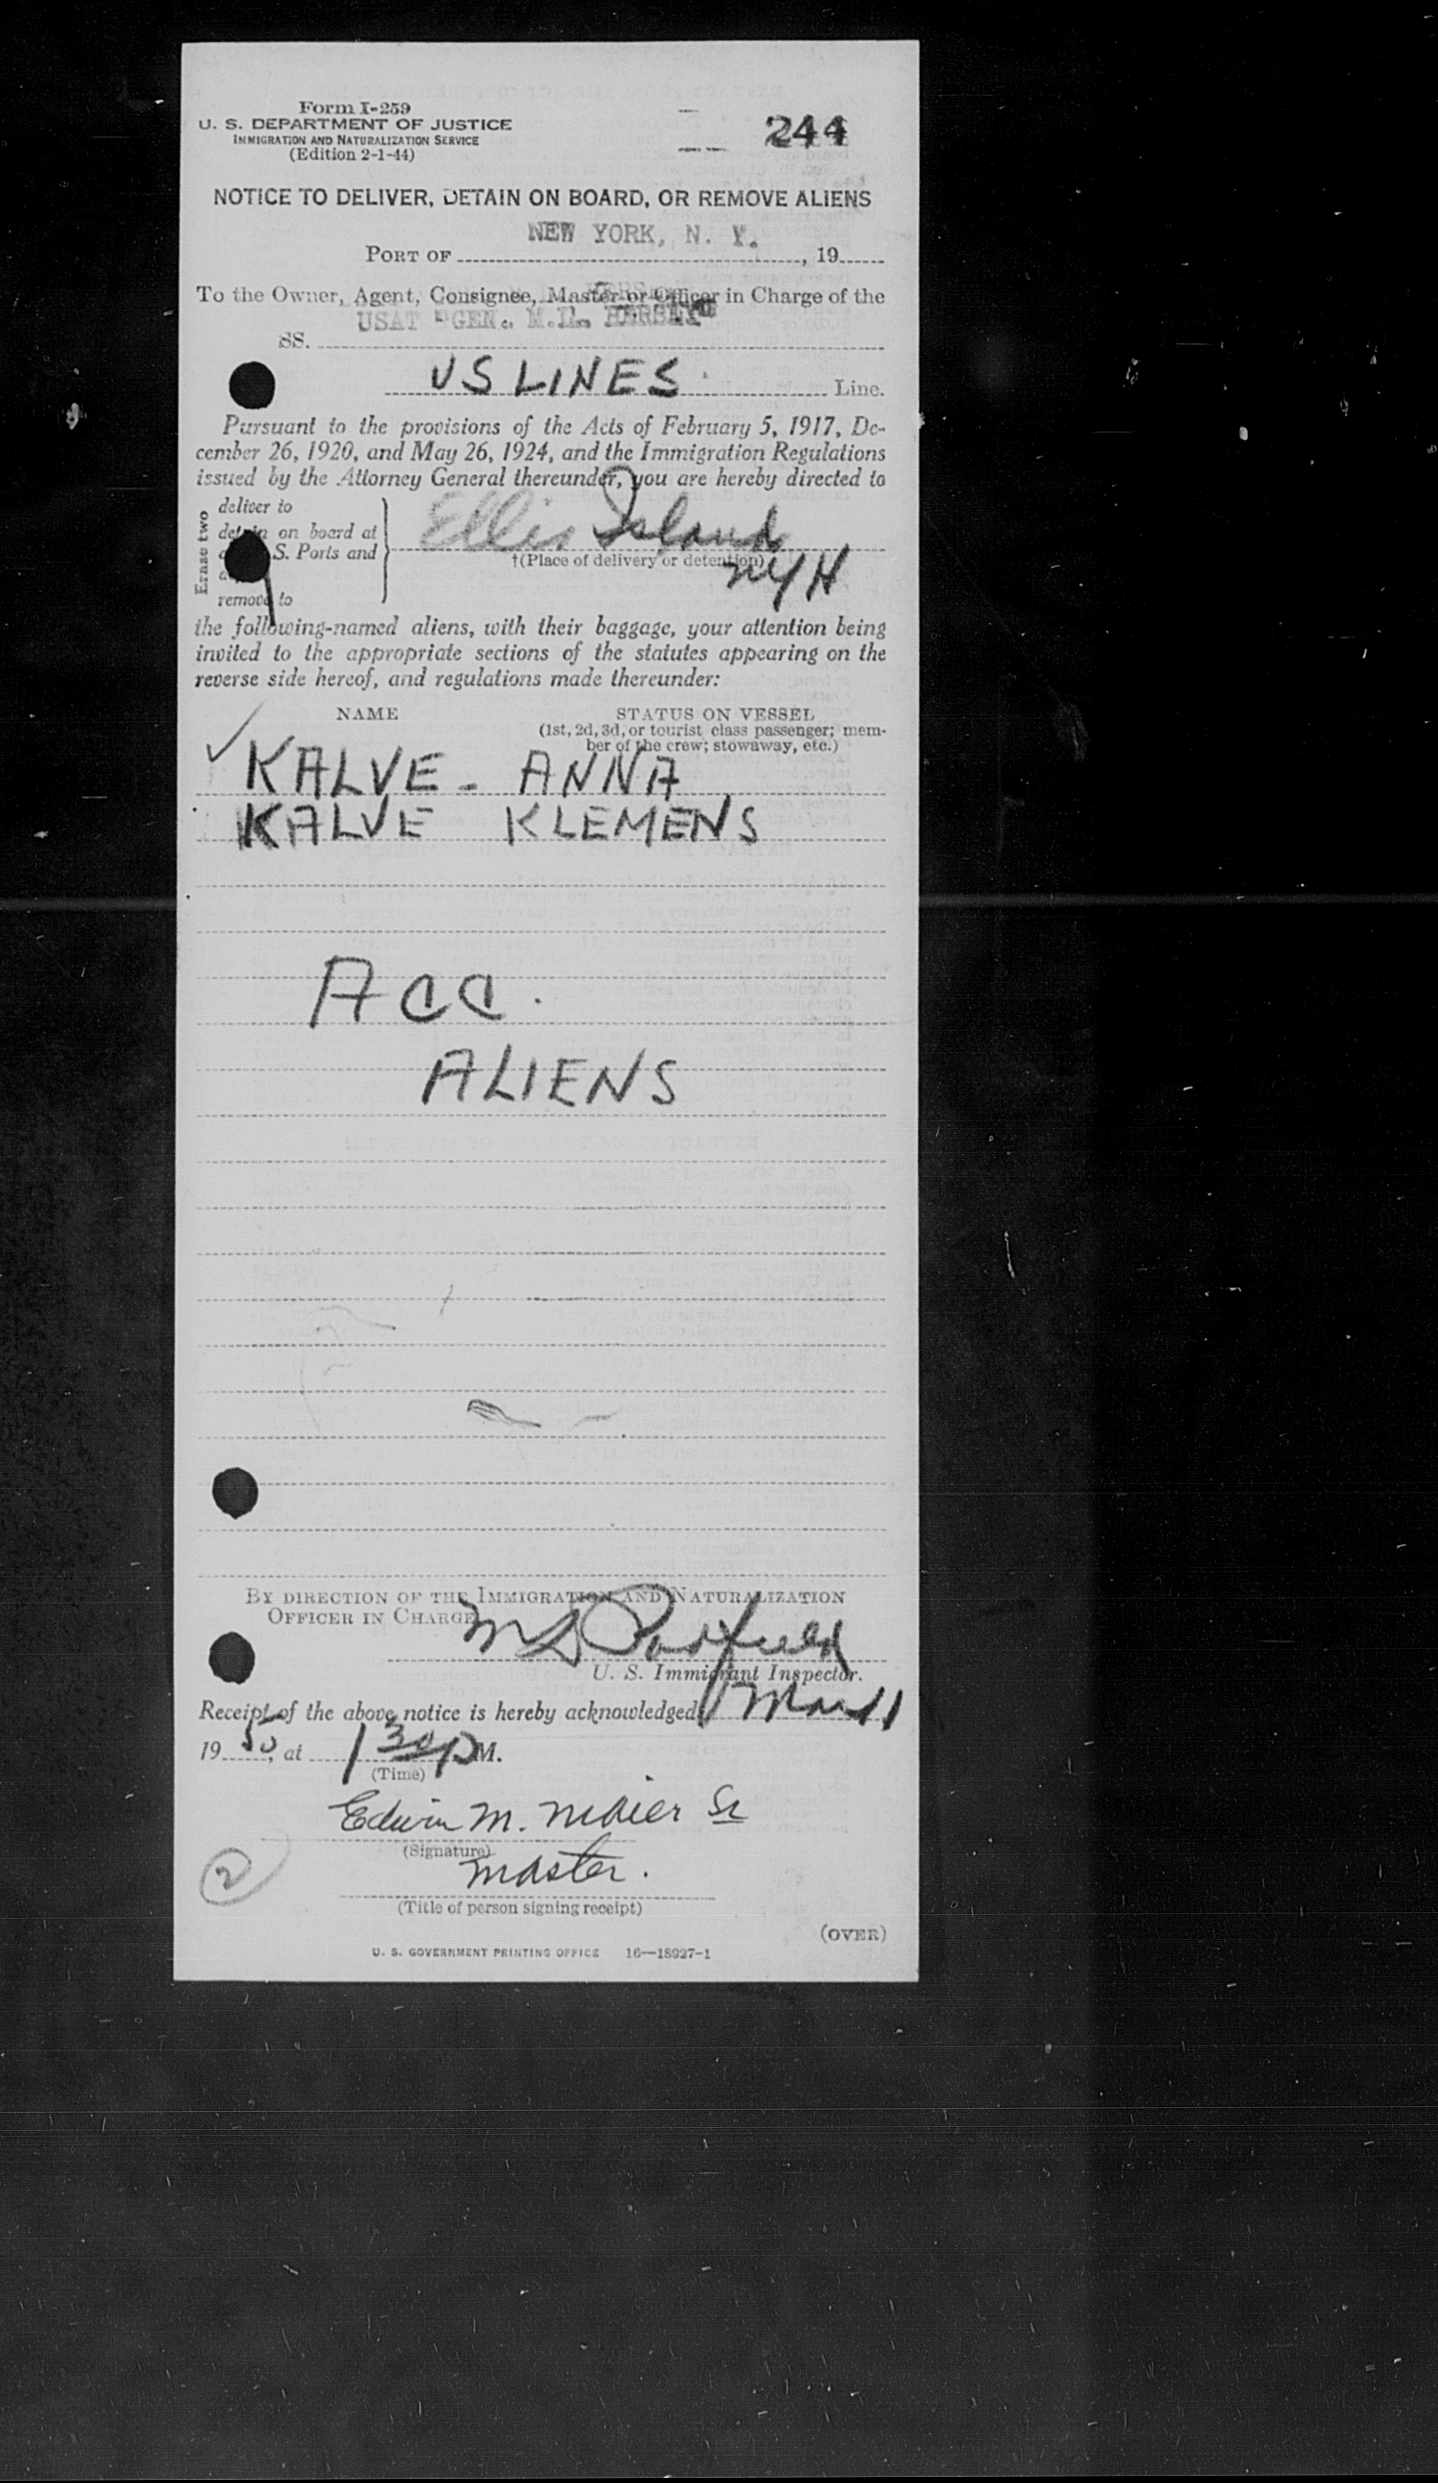 Form I-259
U. S. DEPARTMENT OF JUSTICE
IMMIGRATION AND NATURALIZATION SERVICE
(Edition 2-1-44)
244
NOTICE TO DELIVER, DETAIN ON BOARD, OR REMOVE ALIENS
NEW YORK, N. Y.
PORT OF , 19
To the Owner, Agent, Consignee, Master or Officer in Charge of the
USAT "GEN. M.L. HERSEY"
SS.
US LINES Line.
Pursuant to the provisions of the Acts of February 5, 1917, De-
cember 26, 1920, and May 26, 1924, and the Immigration Regulations
issued by the Attorney General thereunder, you are hereby directed to
Erase two
deliver to
detain on board at
S. Ports and
remove to
Ellis Island
†(Place of delivery or detention)
NYH
the following-named aliens, with their baggage, your attention being
invited to the appropriate sections of the statutes appearing on the
reverse side hereof, and regulations made thereunder:
NAME STATUS ON VESSEL
(1st, 2d, 3d, or tourist class passenger; mem-
ber of the crew; stowaway, etc.)
KALVE - ANNA
KALVE KLEMENS
ACC.
ALIENS
BY DIRECTION OF THE IMMIGRATION AND NATURALIZATION
OFFICER IN CHARGE
U. S. Immigrant Inspector.
Receipt of the above notice is hereby acknowledged Mar 11
19 50, at 1 30 P M.
(Time)
Edwin M. Maier Sr
(Signature)
Master.
(Title of person signing receipt)
2
(OVER)
U. S. GOVERNMENT PRINTING OFFICE 16—18927-1